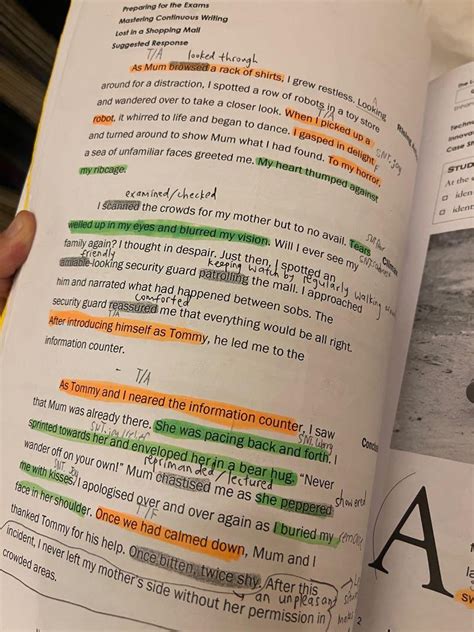 Preparing for the Exams
Mastering Continuous Writing
Lost in a Shopping Mall
Suggested Response
T/A looked through
As Mum browsed a rack of shirts, I grew restless. Looking
around for a distraction, I spotted a row of robots in a toy store
and wandered over to take a closer look. When I picked up a
T/A
robot, it whirred to life and began to dance. I gasped in delight
SNT: joy
and turned around to show Mum what I had found. To my horror,
a sea of unfamiliar faces greeted me. My heart thumped against
my ribcage.
examined/checked
I scanned the crowds for my mother but to no avail. Tears
welled up in my eyes and blurred my vision. Will I ever see my
family again? I thought in despair. Just then, I spotted an
friendly keeping watch by regularly walking
amiable-looking security guard patrolling the mall. I approached
him and narrated what had happened between sobs. The
comforted
security guard reassured me that everything would be all right.
T/A
After introducing himself as Tommy, he led me to the
information counter.
- T/A
As Tommy and I neared the information counter, I saw
that Mum was already there. She was pacing back and forth. I
sprinted towards her and enveloped her in a bear hug. "Never
wander off on your own!" Mum chastised me as she peppered
reprimanded/lectured
showered
me with kisses. I apologised over and over again as I buried my
SNT: joy
face in her shoulder. Once we had calmed down, Mum and I
thanked Tommy for his help. Once bitten, twice shy. After this
an unpleasant
incident, I never left my mother's side without her permission in
crowded areas.
Case S
STUD
At the
iden
iden
A